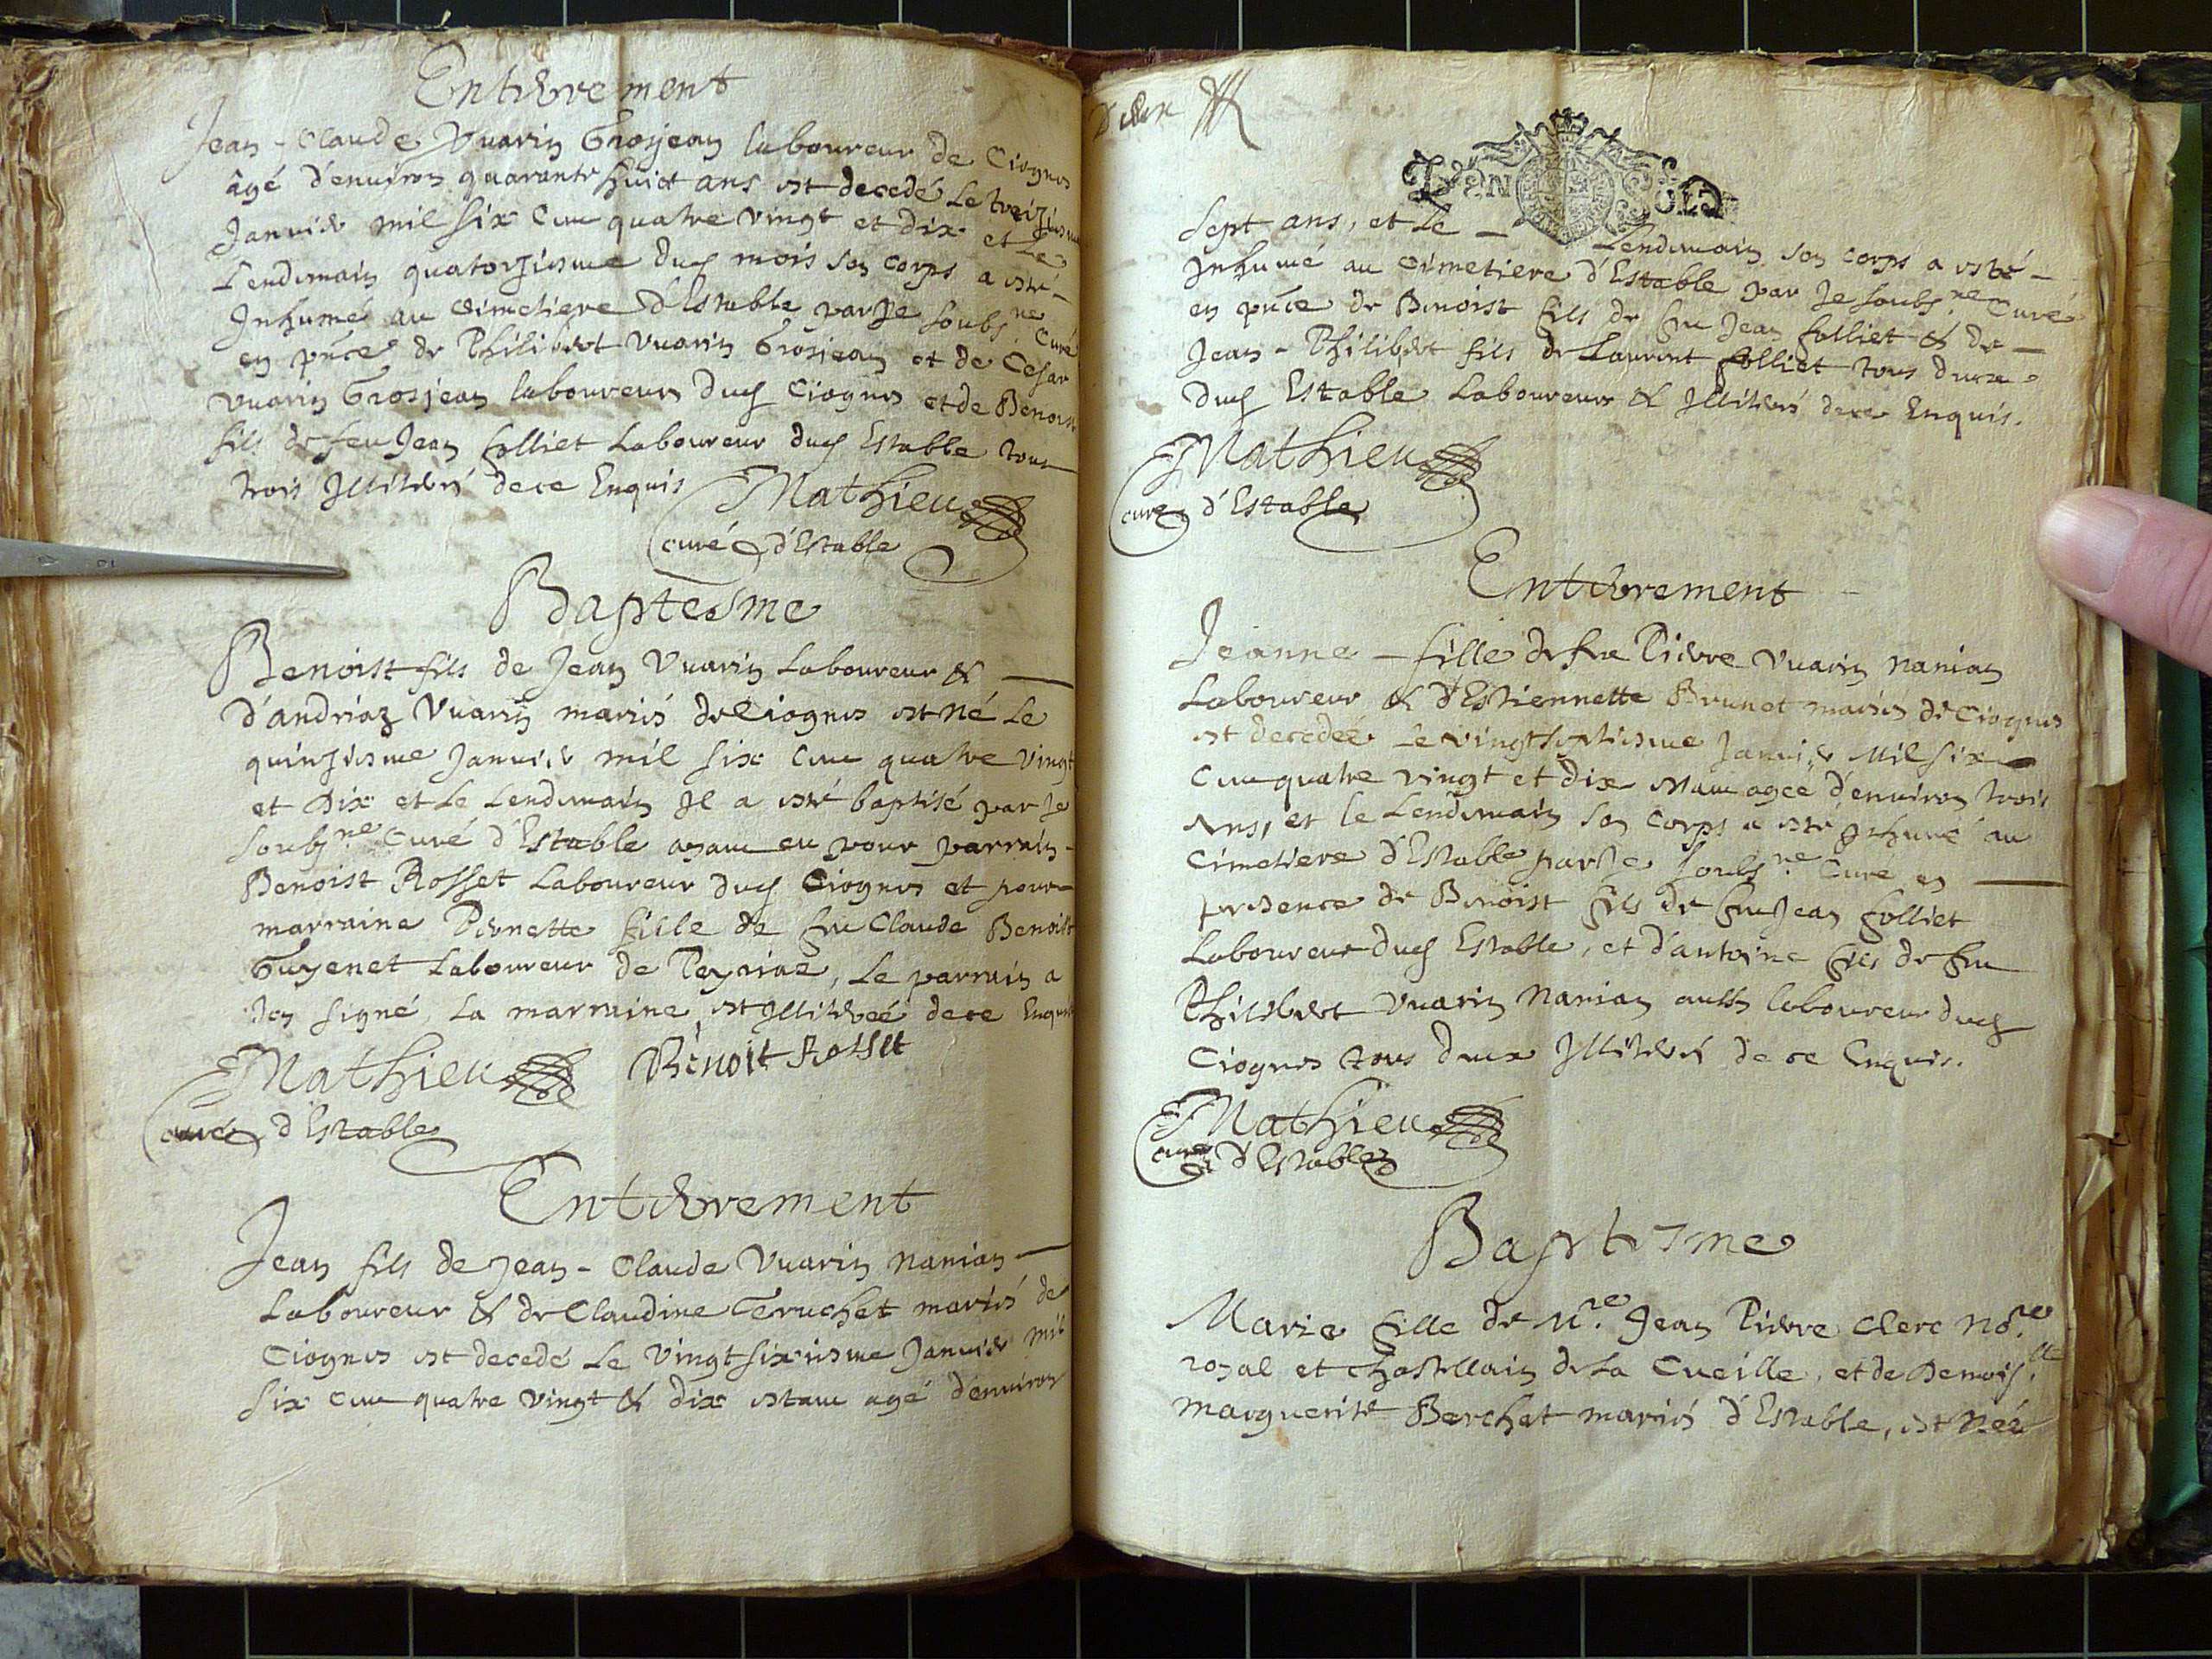 Enterrement
Jean-Claude Vuarin Grosjean laboureur de Ciognes
âgé d'environ quarante huict ans est decedé Le treiziesme
Janvier mil six cent quatre vingt et dix et Le
Lendemain quatorziesme dud mois son corps a esté
Inhumé au cimetiere d'Estable par Je soubs.ne Curé
en pnce de Philibert Vuarin Grosjean et de Cesar
Vuarin Grosjean laboureurs dud Ciognes et de Benoist
fils de feu Jean folliet Laboureur dud Estable tous
trois Illiterés de ce Enquis
Mathieu
curé d'Estable
Baptesme
Benoist fils de Jean Vuarin Laboureur &
d'andriaz Vuarin mariés de Ciognes est né Le
quinziesme Janvier mil six cent quatre vingt
et Dix et Le Lendemain Il a esté baptisé par Je
soubs.ne Curé d'Estable ayant eu pour parrain
Benoist Rosset Laboureur dud Ciognes et pour
marraine Pernette fille de feu Claude Benoist
Guyenet Laboureur de Peyriaz, Le parrain a
Icy signé, La marraine est Illiterée de ce Enquis
Mathieu Benoit Rosset
curé d'Estable
Enterrement
Jean fils de Jean-Claude Vuarin Nanian
Laboureur & de Claudine Teruchet mariés de
Ciognes est decedé Le vingt sixiesme Janvier mil
six cent quatre vingt & dix estant agé d'environ
sept ans, et Le Lendemain son corps a esté
Inhumé au cimetiere d'Estable par Je soubs.ne Curé
en pnce de Benoist fils de feu Jean folliet & de
Jean-Philibert fils de Laurent folliet tous deux
dud Estable Laboureurs & Illiterés de ce Enquis.
Mathieu
curé d'Estable
Enterrement
Jeanne fille de feu Pierre Vuarin Nanian
Laboureur & d'Estiennette Brunet mariés de Ciognes
est decedée Le vingtseptiesme Janvier Mil six
cent quatre vingt et dix estant agée d'environ trois
Ans, et le Lendemain son corps a esté Inhumé au
Cimetiere d'Estable par Je soubs.ne Curé en
presence de Benoist fils de feu Jean folliet
Laboureur dud Estable, et d'antoine fils de feu
Philibert Vuarin Nanian aussy laboureur dud
Ciognes tous deux Illiterés de ce Enquis.
Mathieu
curé d'Estable
Baptesme
Marie fille de M.re Jean Pierre Clerc no.re
royal et chastellain de La Cueille, et de Demois.lle
Marguerite Berchet mariés d'Estable, est Née